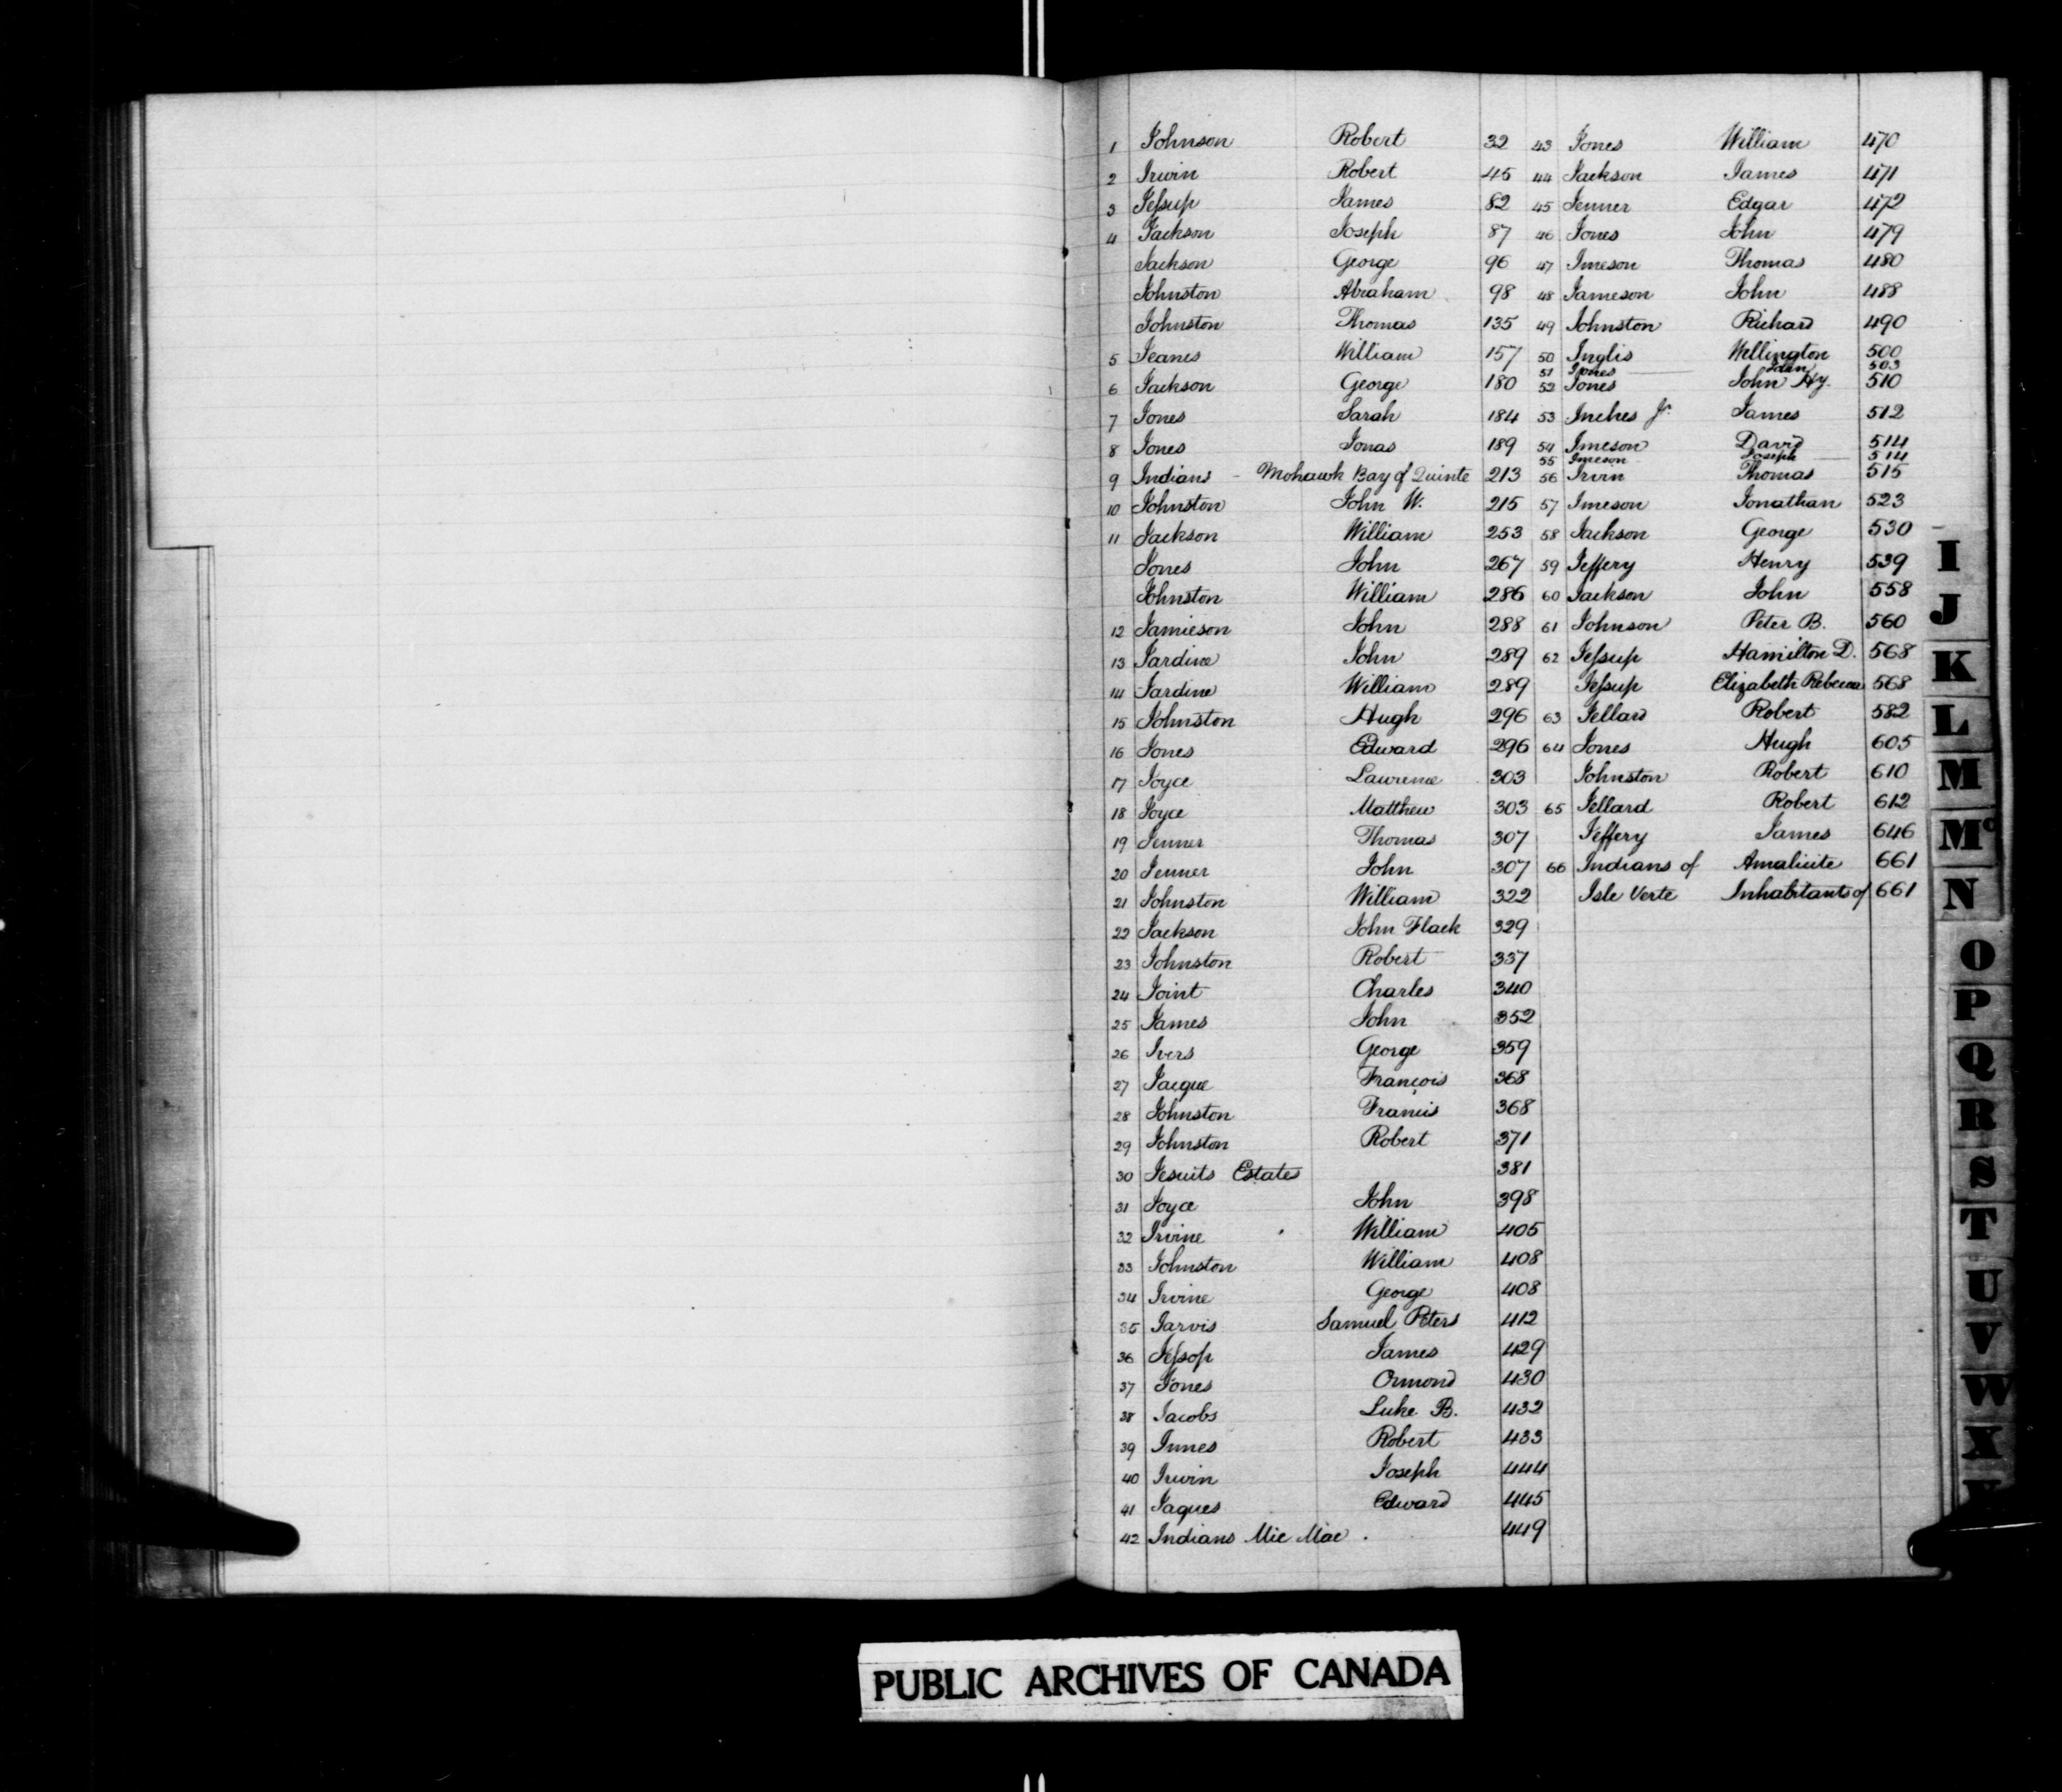 1 Johnson Robert 32
2 Irwin Robert 45
3 Jessup James 82
4 Jackson Joseph 87
Jackson George 96
Johnston Abraham 98
Johnston Thomas 135
5 Jeanes William 157
6 Jackson George 180
7 Jones Sarah 184
8 Jones Jonas 189
9 Indians - Mohawk Bay of Quinte 213
10 Johnston John W. 215
11 Jackson William 253
Jones John 267
Johnston William 286
12 Jamieson John 288
13 Jardine John 289
14 Jardine William 289
15 Johnston Hugh 296
16 Jones Edward 296
17 Joyce Lawrence 303
18 Joyce Matthew 303
19 Jenner Thomas 307
20 Jenner John 307
21 Johnston William 322
22 Jackson John Flack 329
23 Johnston Robert 337
24 Joint Charles 340
25 James John 352
26 Ivers George 359
27 Jacque François 368
28 Johnston Francis 368
29 Johnston Robert 371
30 Jesuits Estates 381
31 Joyce John 398
32 Irvine William 405
33 Johnston William 408
34 Irvine George 408
35 Jarvis Samuel Peters 412
36 Jessop James 429
37 Jones Ormond 430
38 Jacobs Luke B. 432
39 Innes Robert 433
40 Irwin Joseph 444
41 Jaques Edward 445
42 Indians Mic Mac . 449
43 Jones William 470
44 Jackson James 471
45 Jenner Edgar 472
46 Jones John 479
47 Imeson Thomas 480
48 Jameson John 488
49 Johnston Richard 490
50 Inglis Wellington 500
51 Jones John 503
52 Jones John Hy. 510
53 Inches Jr. James 512
54 Imeson David 514
55 Imeson Joseph 514
56 Irvin Thomas 515
57 Imeson Jonathan 523
58 Jackson George 530
59 Jeffery Henry 539
60 Jackson John 558
61 Johnson Peter B. 560
62 Jessup Hamilton D. 568
Jessup Elizabeth Rebecca 568
63 Jellard Robert 582
64 Jones Hugh 605
Johnston Robert 610
65 Jellard Robert 612
Jeffery James 646
66 Indians of Amalicite 661
Isle Verte Inhabitants of 661
I
J
K
L
M
Mc
N
O
P
Q
R
S
T
U
V
W
X
PUBLIC ARCHIVES OF CANADA